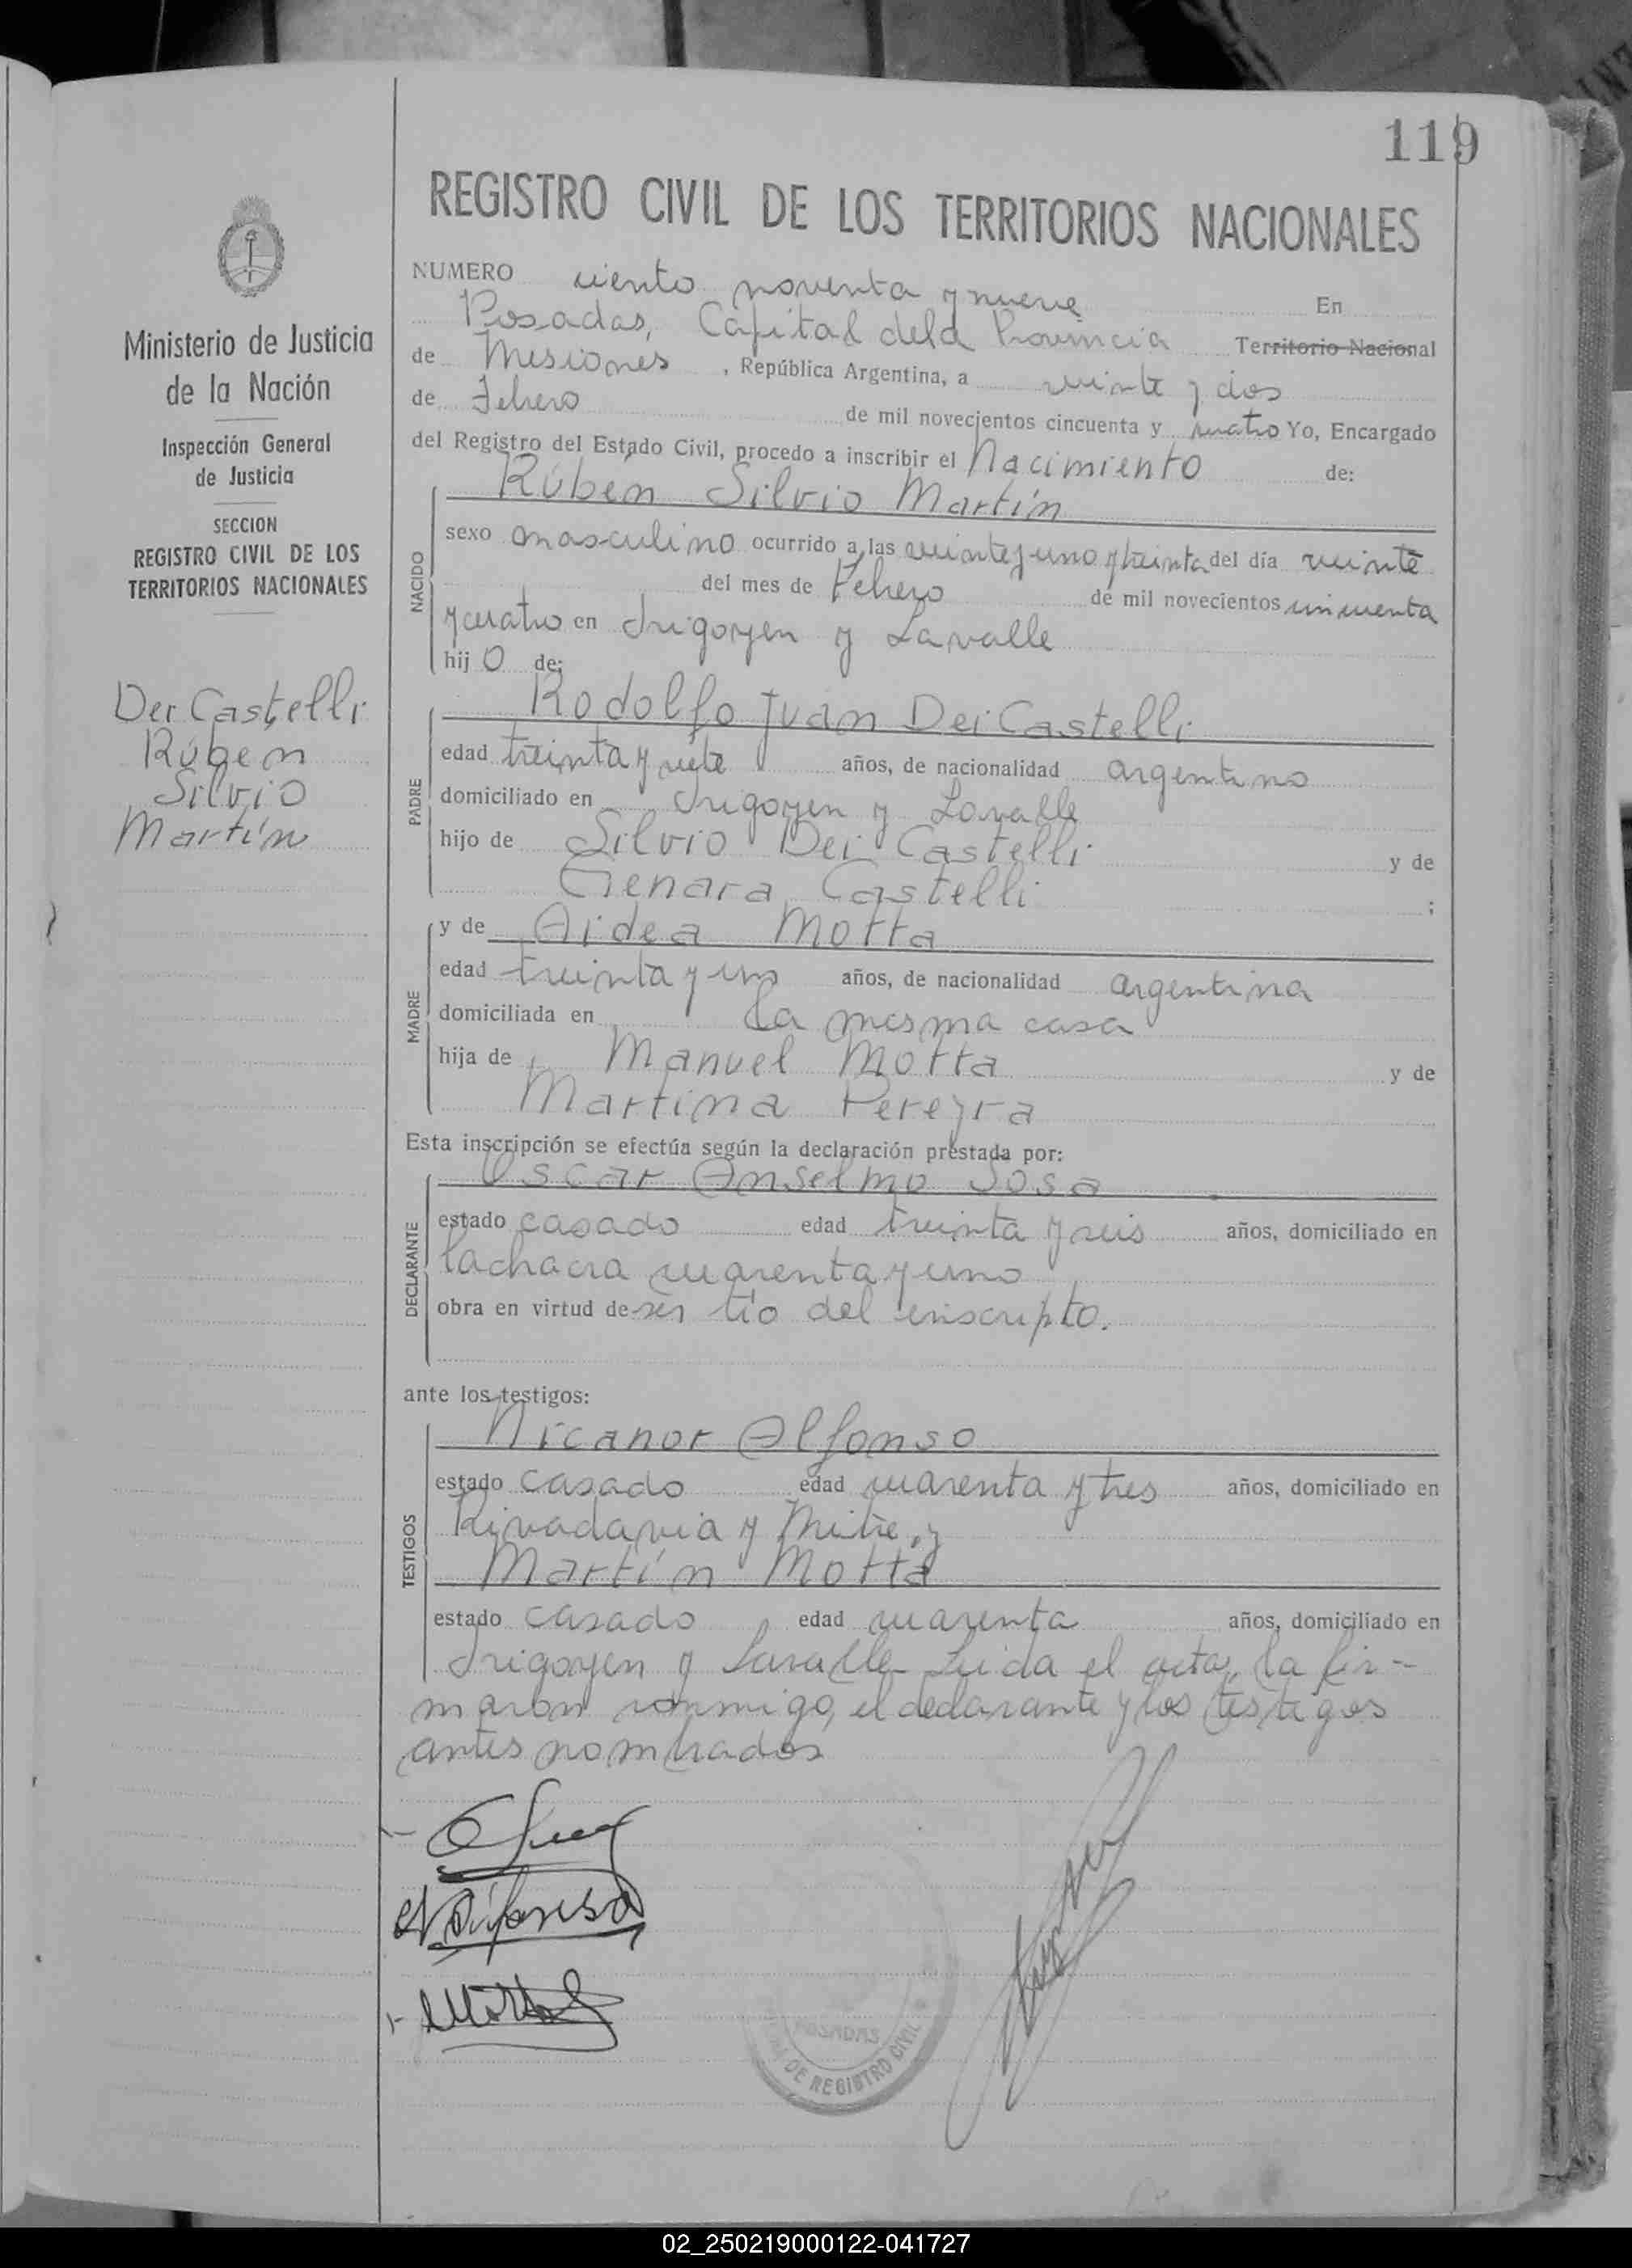 119
REGISTRO CIVIL DE LOS TERRITORIOS NACIONALES
Ministerio de Justicia
de la Nación
Inspección General
de Justicia
SECCION
REGISTRO CIVIL DE LOS
TERRITORIOS NACIONALES
Dei Castelli
Rúben
Silvio
Martín
NUMERO ciento noventa y nueve En
Posadas, Capital dela Provincia Territorio Nacional
de Misiones, República Argentina, a veinte y dos
de Febrero de mil novecientos cincuenta y cuatro Yo, Encargado
del Registro del Estado Civil, procedo a inscribir el Nacimiento de:
Rúben Silvio Martín
NACIDO
sexo masculino ocurrido a las veinte y uno y treinta del día veinte
del mes de Febrero de mil novecientos cincuenta
y cuatro en Irigoyen y Lavalle
hijo de:
Rodolfo Juan Dei Castelli
PADRE
edad treinta y siete años, de nacionalidad argentino
domiciliado en Irigoyen y Lavalle
hijo de Silvio Dei Castelli y de
Genara Castelli ;
y de Aidea Motta
MADRE
edad treinta y uno años, de nacionalidad argentina
domiciliada en la misma casa
hija de Manuel Motta y de
Martina Pereyra
Esta inscripción se efectúa según la declaración prestada por:
Oscar Anselmo Sosa
DECLARANTE
estado casado edad treinta y seis años, domiciliado en
la chacra cuarenta y uno
obra en virtud de ser tío del inscripto.
ante los testigos:
Nicanor Alfonso
TESTIGOS
estado casado edad cuarenta y tres años, domiciliado en
Rivadavia y Mitre, y
Martín Motta
estado casado edad cuarenta años, domiciliado en
Irigoyen y Lavalle Leida el acta, la fir-
maron conmigo, el declarante y los testigos
antes nombrados
POSADAS
DE REGISTRO CIVIL
02_250219000122-041727